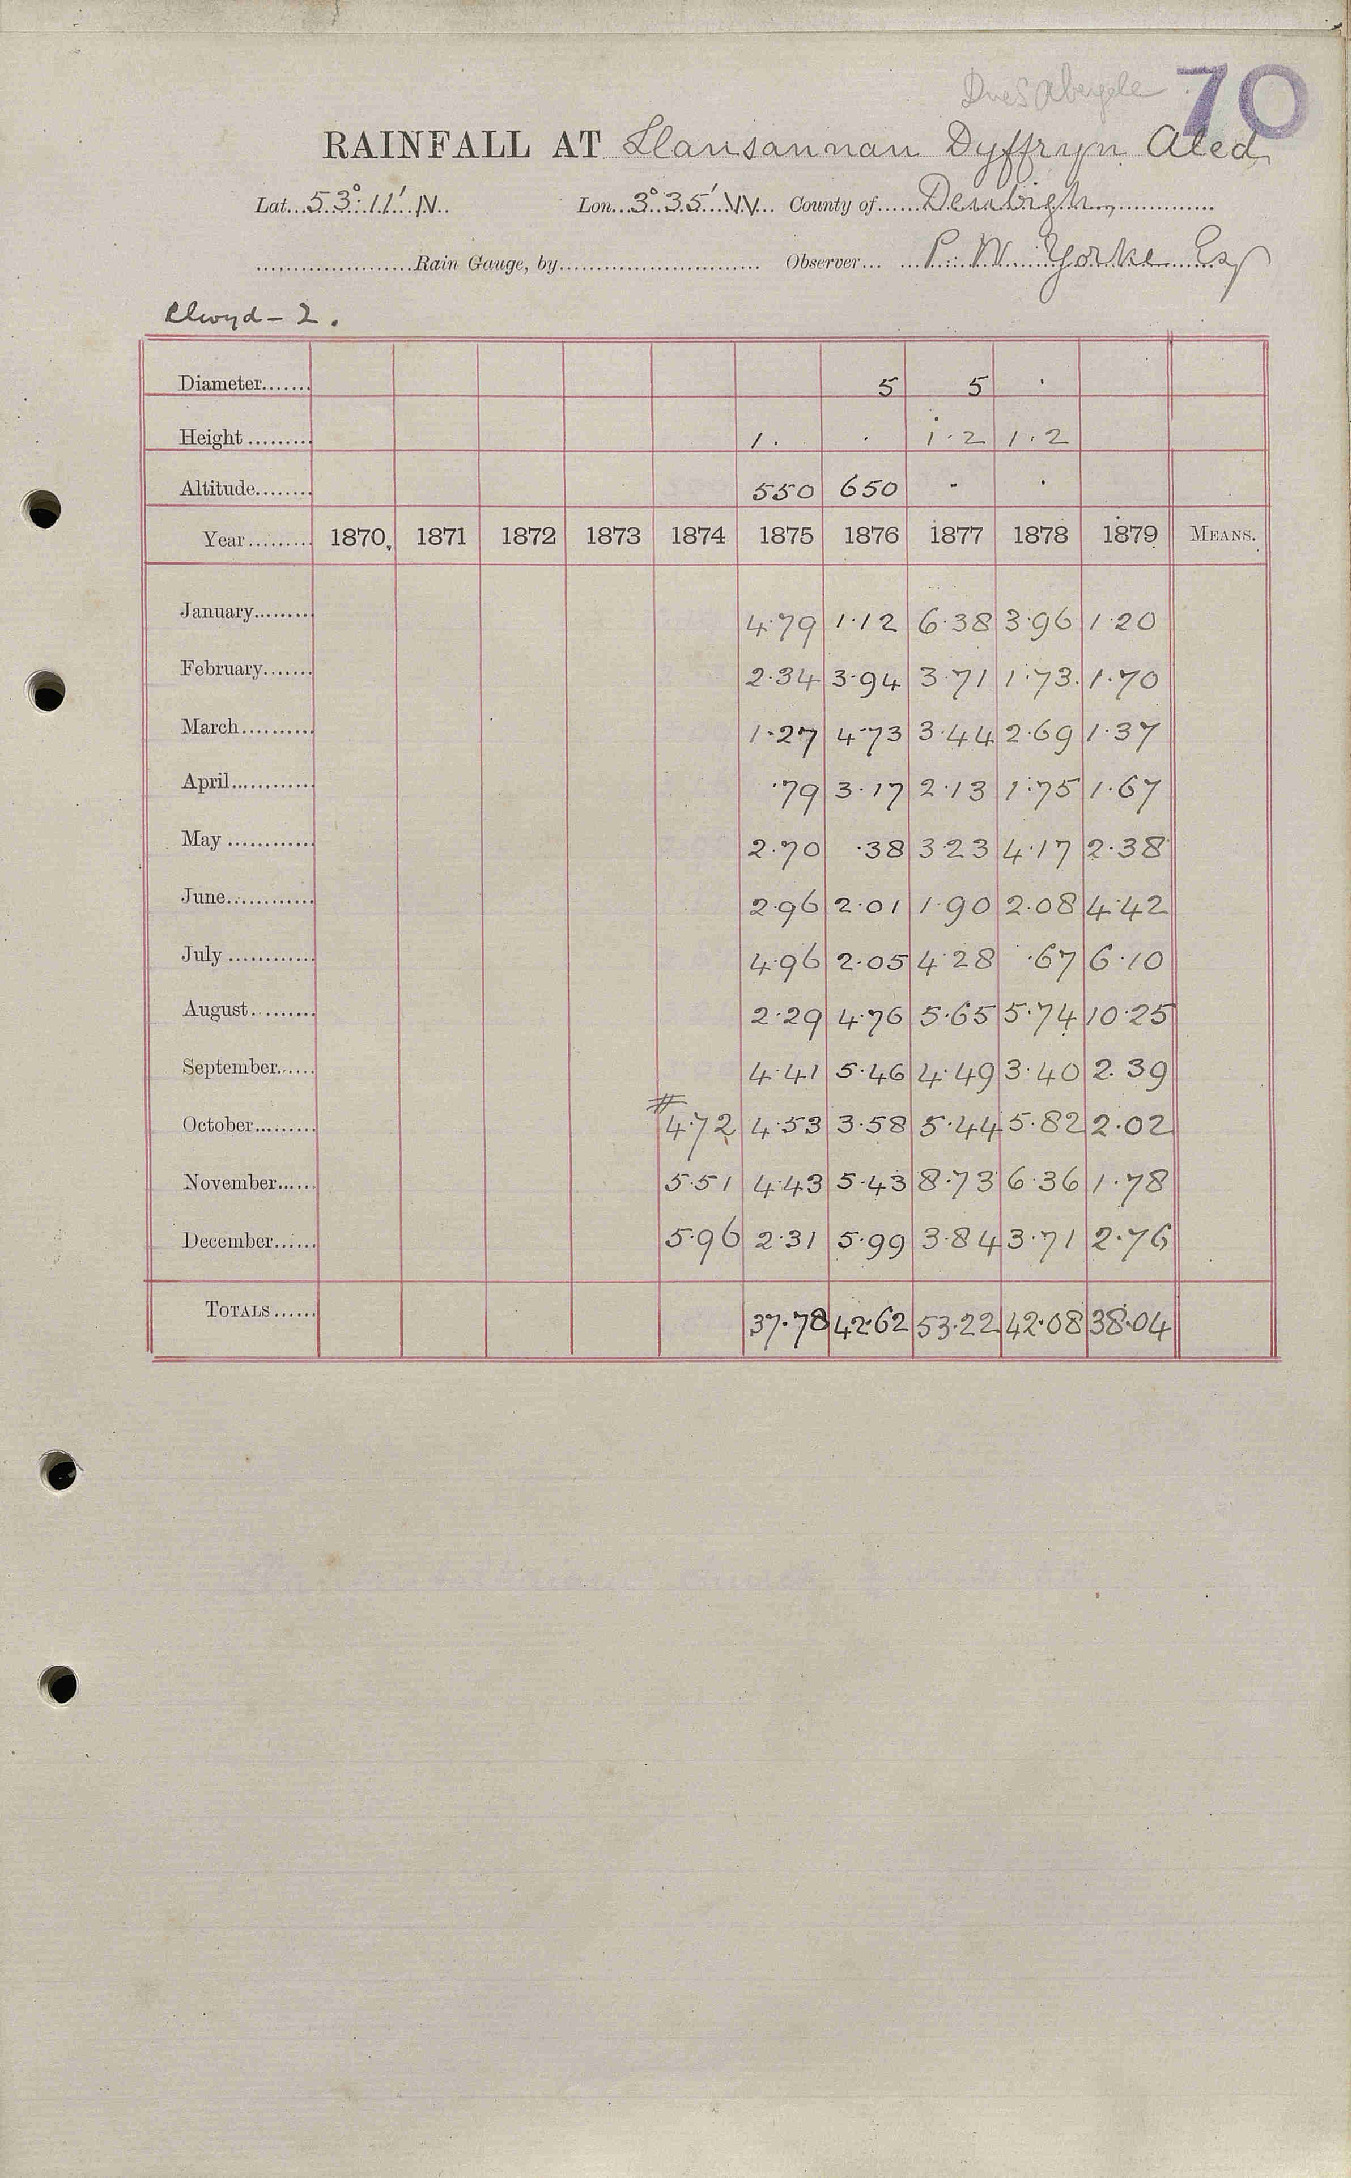 Abergele 70
RAINFALL AT Llansannan Dyffryn Aled
Lat. 53° 11' N. Lon. 3° 35' W. County of Denbigh,
Rain Gauge, by Observer P. W. Yorke Esq
Clwyd - 2.
Diameter 5 5 ·
Height 1. · 1·2 1·2
Altitude 550 650 - ·
Year 1870 1871 1872 1873 1874 1875 1876 1877 1878 1879 MEANS.
January 4·79 1·12 6·38 3·96 1·20
February 2·34 3·94 3·71 1·73 1·70
March 1·27 4·73 3·44 2·69 1·37
April ·79 3·17 2·13 1·75 1·67
May 2·70 ·38 3·23 4·17 2·38
June 2·96 2·01 1·90 2·08 4·42
July 4·96 2·05 4·28 ·67 6·10
August 2·29 4·76 5·65 5·74 10·25
September 4·41 5·46 4·49 3·40 2·39
October #4·72 4·53 3·58 5·44 5·82 2·02
November 5·51 4·43 5·43 8·73 6·36 1·78
December 5·96 2·31 5·99 3·84 3·71 2·76
TOTALS 37·78 42·62 53·22 42·08 38·04